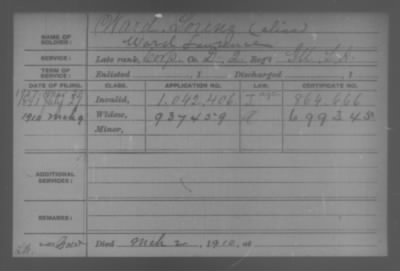 NAME OF SOLDIER: Ward, Lorenz (alias)
Ward Lawrence
SERVICE: Late rank, Corp, Co. D, 2, Reg't Ill. L.A.
TERM OF SERVICE: Enlisted , 1 Discharged , 1
DATE OF FILING. CLASS. APPLICATION NO. LAW. CERTIFICATE NO.
1891 July 27 Invalid, 1,042,406 864,666
1910 Mch 9 Widow, 937459 699345
Minor,
ADDITIONAL SERVICES:
REMARKS:
Died Mch 2, 1910, at